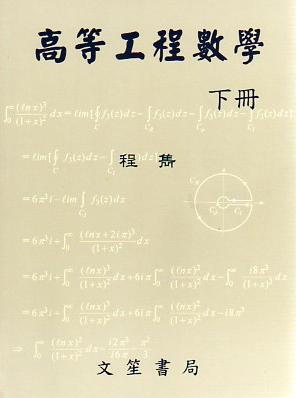 高等工程數學
下冊
∫₀^∞ (ℓnx)³/(1+x)² dx = ℓim[∮_C f₃(z)dz − ∫_{C_R} f₃(z)dz − ∫_{C_ρ} f₃(z)dz − ∫_{C_1} f₃(z)dz]
= ℓim[∮_C f₃(z)dz − ∫_{C_1} f₃(z)dz]
程雋
= 6π³i − ℓim ∫_{C_1} f₃(z)dz
= 6π³i + ∫₀^∞ (ℓnx + 2πi)³/(1+x)² dx
= 6π³i + ∫₀^∞ (ℓnx)³/(1+x)² dx + 6iπ ∫₀^∞ (ℓnx)²/(1+x)² dx − ∫₀^∞ i8π³/(1+x)² dx
= 6π³i + ∫₀^∞ (ℓnx)³/(1+x)² dx + 6iπ ∫₀^∞ (ℓnx)²/(1+x)² dx − i8π³
⇒ ∫₀^∞ (ℓnx)²/(1+x)² dx = i2π³/i6π = π²/3
文笙書局